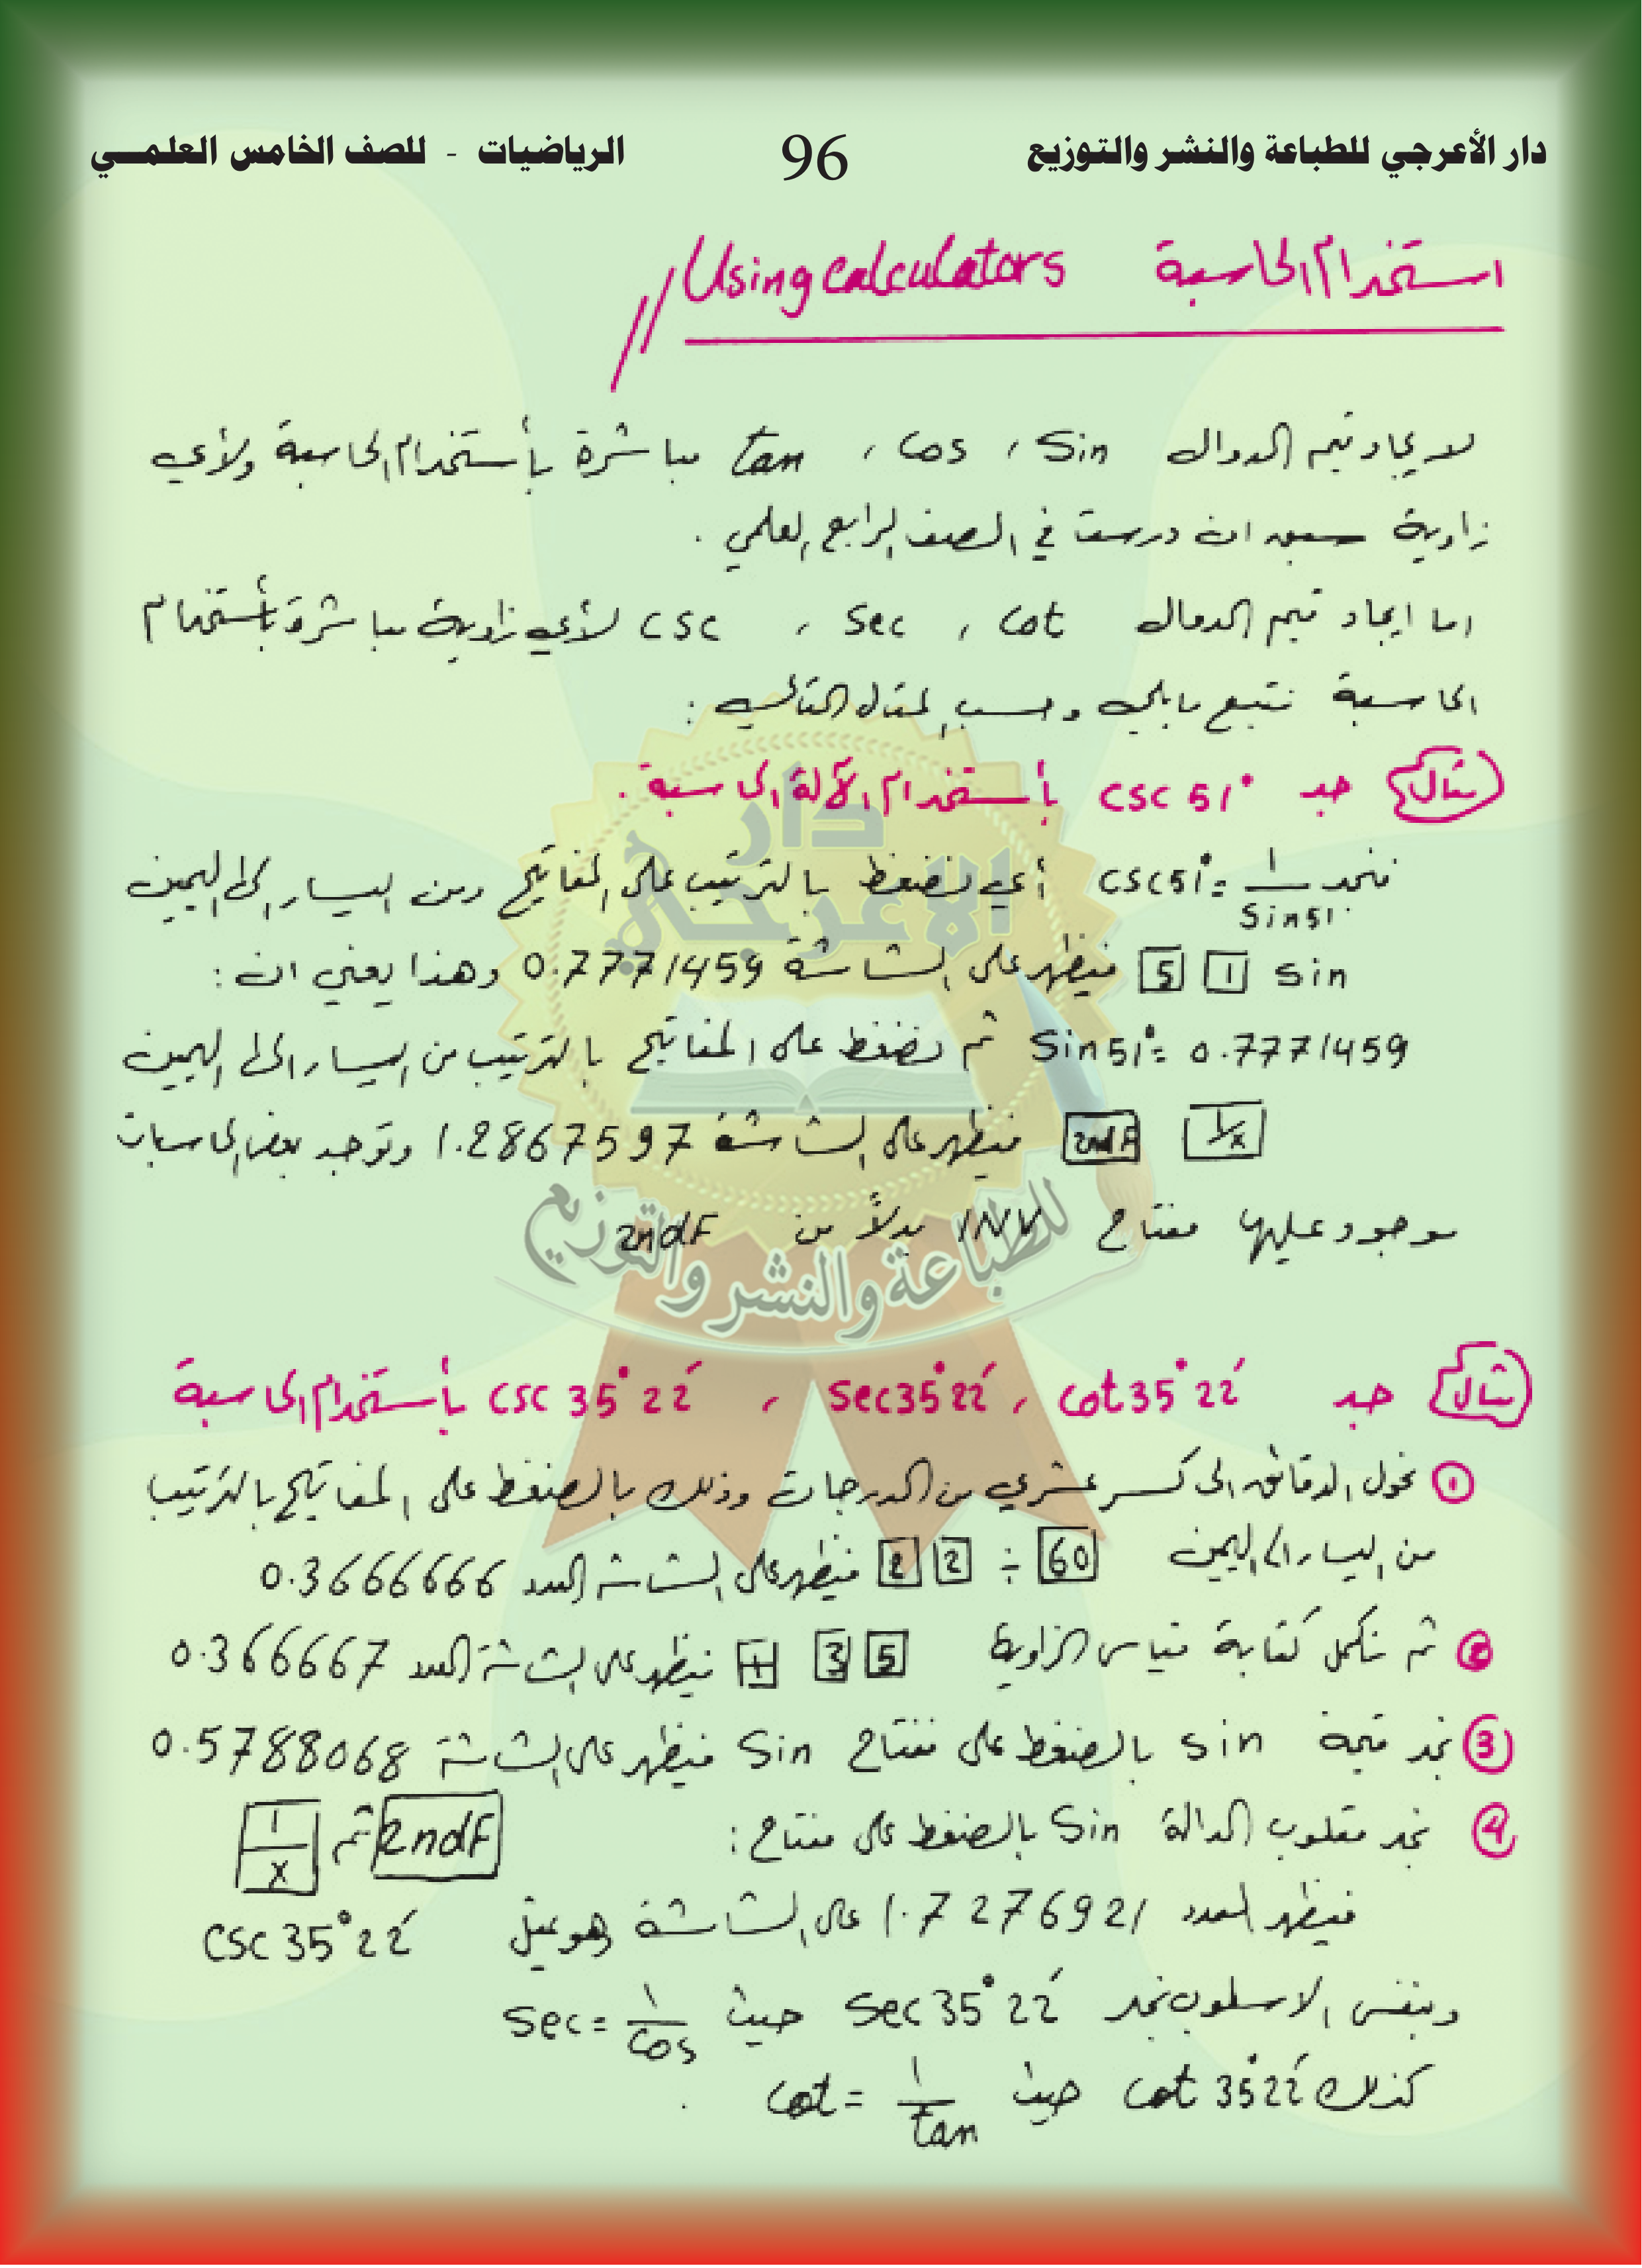 دار الأعرجي للطباعة والنشر والتوزيع 96 الرياضيات - للصف الخامس العلمي
استخدام الحاسبة Using calculators
لايجاد قيم الدوال Sin ، Cos ، tan مباشرة بأستخدام الحاسبة ولأي
زاوية سبق ان درست في الصف الرابع العلمي .
اما ايجاد قيم الدوال Cot ، Sec ، CSC لأي زاوية مباشرة بأستخدام
الحاسبة نتبع مايلي وحسب المثال التالي :
مثال جد CSC 51° بأستخدام الآلة الحاسبة .
فنجد CSC51° = 1/Sin51° أي نضغط بالترتيب على المفاتيح ومن اليسار الى اليمين
5 1 Sin فيظهر على الشاشة 0.7771459 وهذا يعني ان :
Sin51° = 0.7771459 ثم نضغط على المفاتيح بالترتيب من اليسار الى اليمين
2ndF 1/x فيظهر على الشاشة 1.2867597 وتوجد بعض الحاسبات
موجود عليها مفتاح INV بدلاً من 2ndF
دار
الاعرجي
للطباعة والنشر والتوزيع
مثال جد Cot35°22′ ، Sec35°22′ ، CSC 35°22′ بأستخدام الحاسبة
① نحول الدقائق الى كسر عشري من الدرجات وذلك بالضغط على المفاتيح بالترتيب
من اليسار الى اليمين 2 2 ÷ 60 فيظهر على الشاشة العدد 0.3666666
② ثم نكمل كتابة قياس الزاوية + 3 5 فيظهر على الشاشة العدد 0.366667
③ نجد قيمة Sin بالضغط على مفتاح Sin فيظهر على الشاشة 0.5788068
④ نجد مقلوب الدالة Sin بالضغط على مفتاح : 2ndF ثم 1/x
فيظهر العدد 1.7276921 على الشاشة وهو يمثل CSC 35°22′
وبنفس الاسلوب نجد Sec35°22′ حيث Sec = 1/Cos
كذلك Cot 35°22′ حيث Cot = 1/tan .